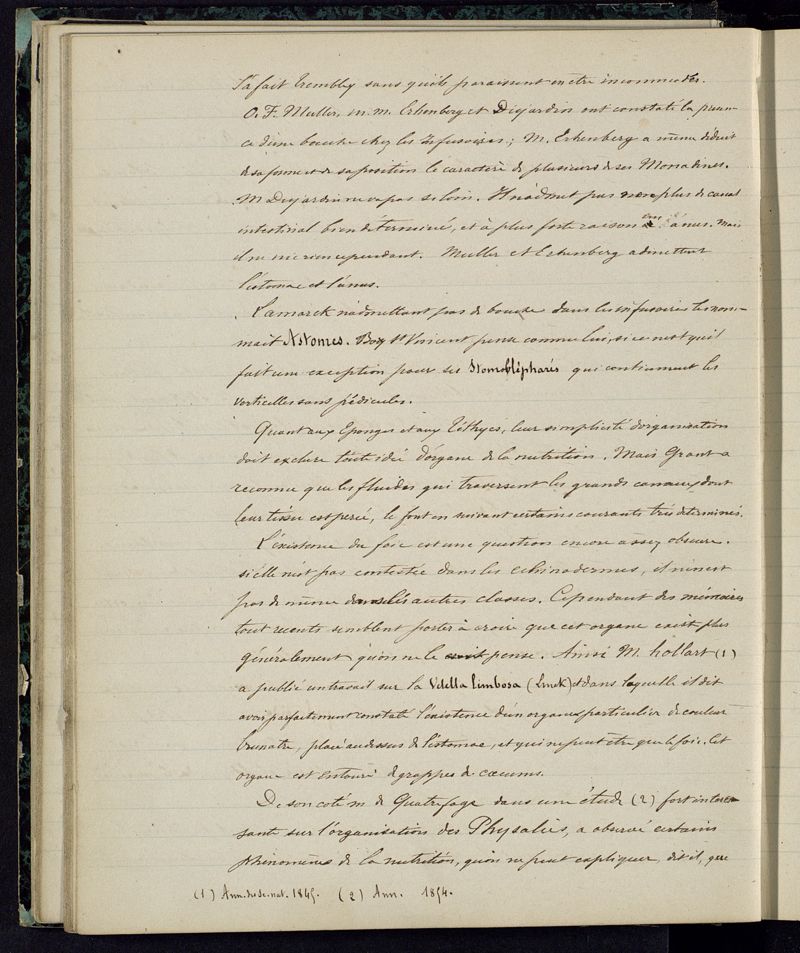 l'a fait Trembley sans qu'ils paraissent en être incommodés.
O. F. Muller, m. m. Erhenberg et Dujardin ont constaté la présen-
ce d'une bouche chez les Infusoires; M. Erhenberg a même déduit
de sa forme et de sa position le caractère de plusieurs de ses Monadines.
M Dujardin ne va pas si loin. Il n'admet pas non plus de canal
intestinal bien déterminé, et à plus forte raison un anus. Mais
il ne nie rien cependant. Muller et Erhenberg admettent
l'estomac et l'anus.
Lamarck n'admettant pas de bouche dans les infusoires les nom-
mait Astomes. Bory St Vincent pense comme lui, si ce n'est qu'il
fait une exception pour ses Stomoblépharés qui contiennent les
vorticelles sans pédicules.
Quant aux Eponges et aux Téthyes, leur simplicité d'organisation
doit exclure toute idée d'organe de la nutrition. Mais Grant a
reconnu que les fluides qui traversent les grands canaux dont
leur tissu est percé, le font en suivant certains courants très déterminés.
L'existence du foie est une question encore assez obscure.
si elle n'est pas contestée dans les echinodermes, il n'en est
pas de même dans les autres classes. Cependant des mémoires
tout recents semblent porter à croire que cet organe existe plus
généralement qu'on ne le pense. Ainsi M. hollart (1)
a publié un travail sur la Velella limbosa (Lmck) et dans laquelle il dit
avoir parfaitement constaté l'existence d'un organe particulier de couleur
brunatre, placé au dessus de l'estomac, et qui ne peut être que le foie. Cet
organe est entouré de grappes de cœcums.
De son coté m de Quatrefage dans une étude (2) fort intéres-
sante sur l'organisation des Physalies, a observé certains
phénomènes de la nutrition, qu'on ne peut expliquer, dit il, que
(1) Ann. des sc. nat. 1845. (2) Ann. 1854.